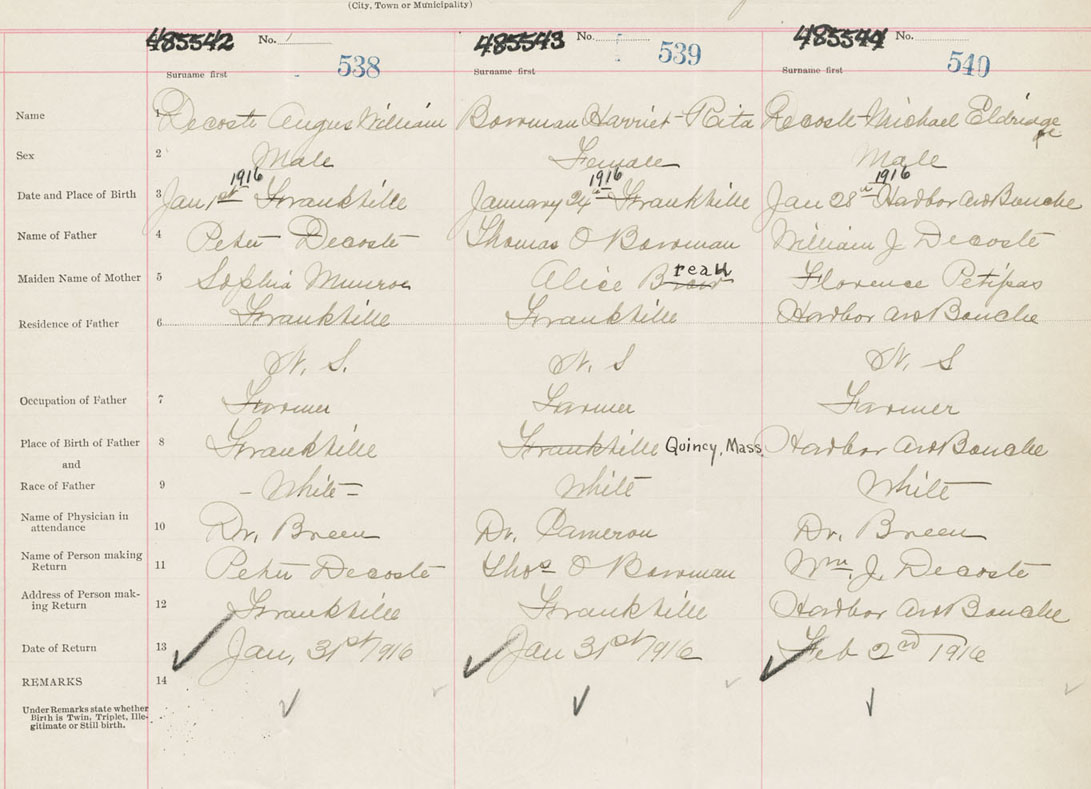 (City, Town or Municipality)
485542 No. 1 485543 No. 485544 No.
538 539 540
Surname first Surname first Surname first
Name 1 Decoste Angus William Bowman Harriet Rita Decoste Michael Eldridge
Sex 2 Male Female Male
1916 1916 1916
Date and Place of Birth 3 Jan 1st Frankville January 24th Frankville Jan 28th Harbor au Bouche
Name of Father 4 Peter Decoste Thomas O Bowman William J Decoste
Maiden Name of Mother 5 Sophia Munroe Alice Breau Florence Petipas
Residence of Father 6 Frankville Frankville Harbor au Bouche
N. S. N. S N. S
Occupation of Father 7 Farmer Farmer Farmer
Place of Birth of Father 8 Frankville Frankville Quincy, Mass. Harbor au Bouche
and
Race of Father 9 - White - White White
Name of Physician in
attendance 10 Dr. Breen Dr. Cameron Dr. Breen
Name of Person making
Return 11 Peter Decoste Thos O Bowman Wm. J. Decoste
Address of Person mak-
ing Return 12 Frankville Frankville Harbor au Bouche
Date of Return 13 Jan, 31st 1916 Jan 31st 1916 Feb 2nd 1916
REMARKS 14
Under Remarks state whether
Birth is Twin, Triplet, Ille-
gitimate or Still birth.